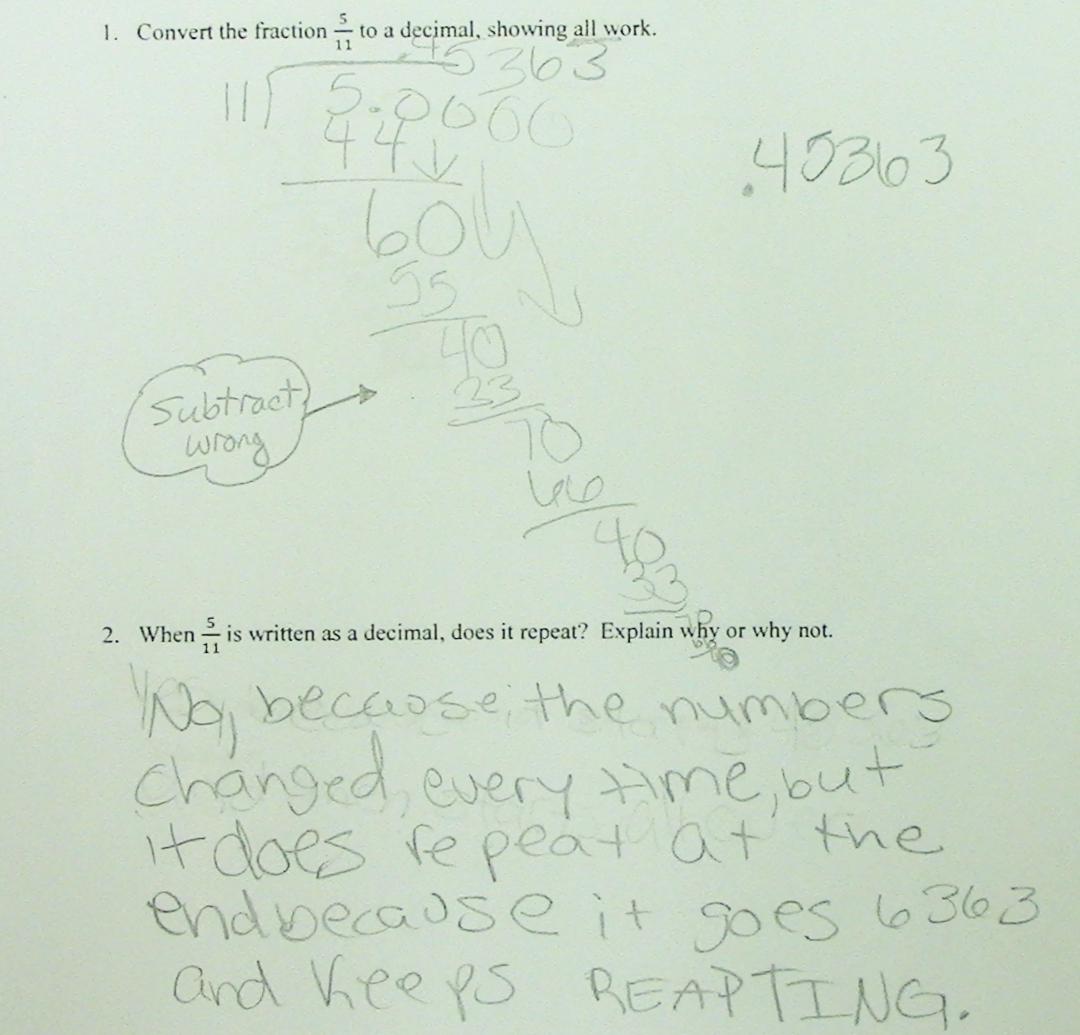 1. Convert the fraction 5/11 to a decimal, showing all work.
.45363
11 5.0000
44
.45363
60
55
40
Subtract
wrong
33
70
66
40
33
70
66
2. When 5/11 is written as a decimal, does it repeat? Explain why or why not.
No, because, the numbers
changed every time, but
it does repeat at the
end because it goes 6363
and keeps REAPTING.